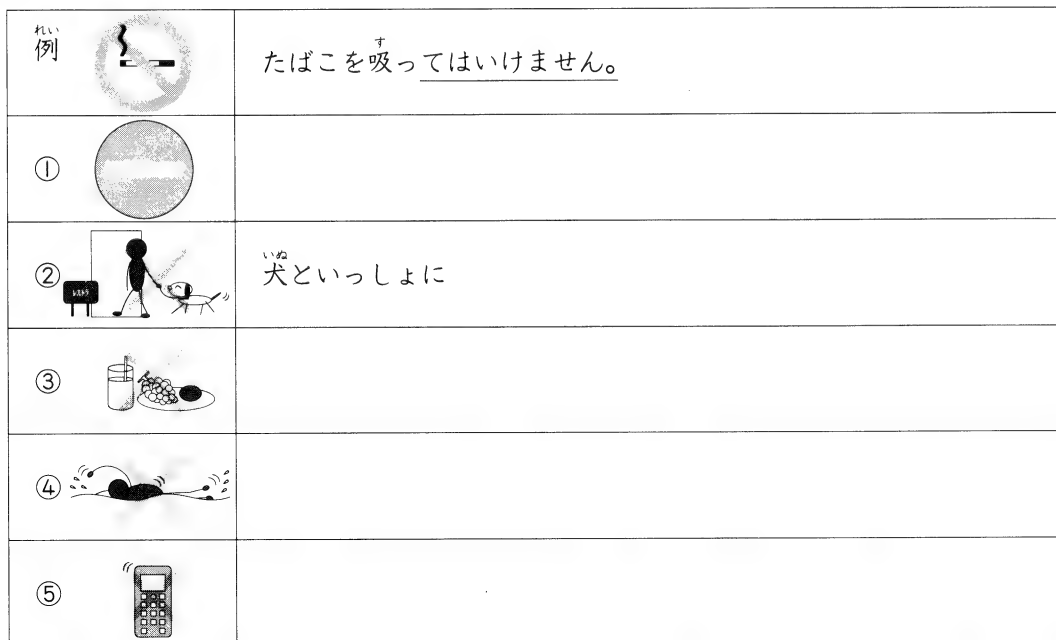 れい
例
たばこを吸ってはいけません。
す
①
②
レストラン
いぬ
犬といっしょに
③
④
⑤